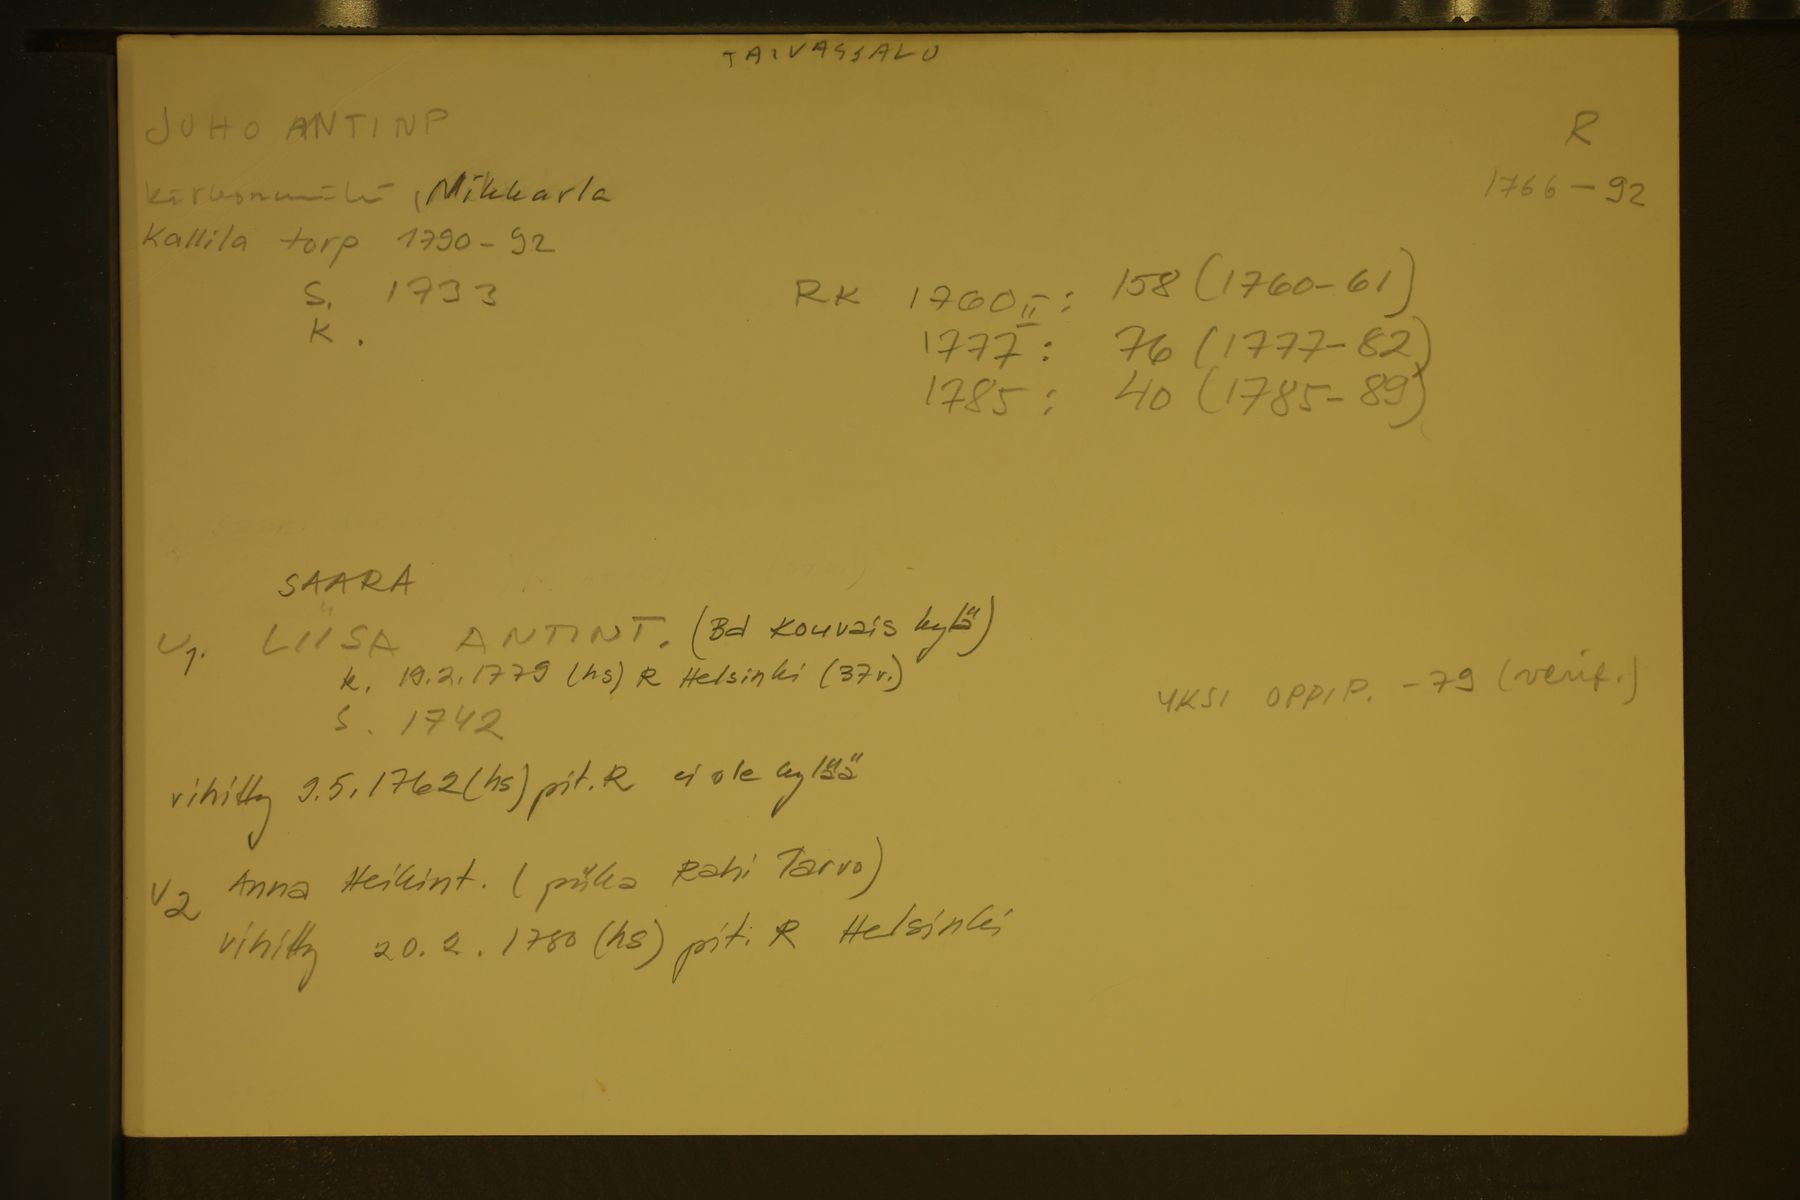 TAIVASSALO
JUHO ANTINP
R
Kirkonmäki, Mikkarla
1766-92
Kallila torp 1790-92
S. 1733
RK 1760 II: 158 (1760-61)
K.
1777: 76 (1777-82)
1785: 40 (1785-89)
SAARA
V1. LIISA ANTINT. (Bd Kouvais kylä)
k. 19.2.1779 (hs) R Helsinki (37v.)
YKSI OPPIP. -79 (verif.)
S. 1742
vihitty 9.5.1762 (hs) pit. R ei ole kylää
V2 Anna Heikint. (piika Rahi Tarvo)
vihitty 20.2.1780 (hs) pit. R Helsinki